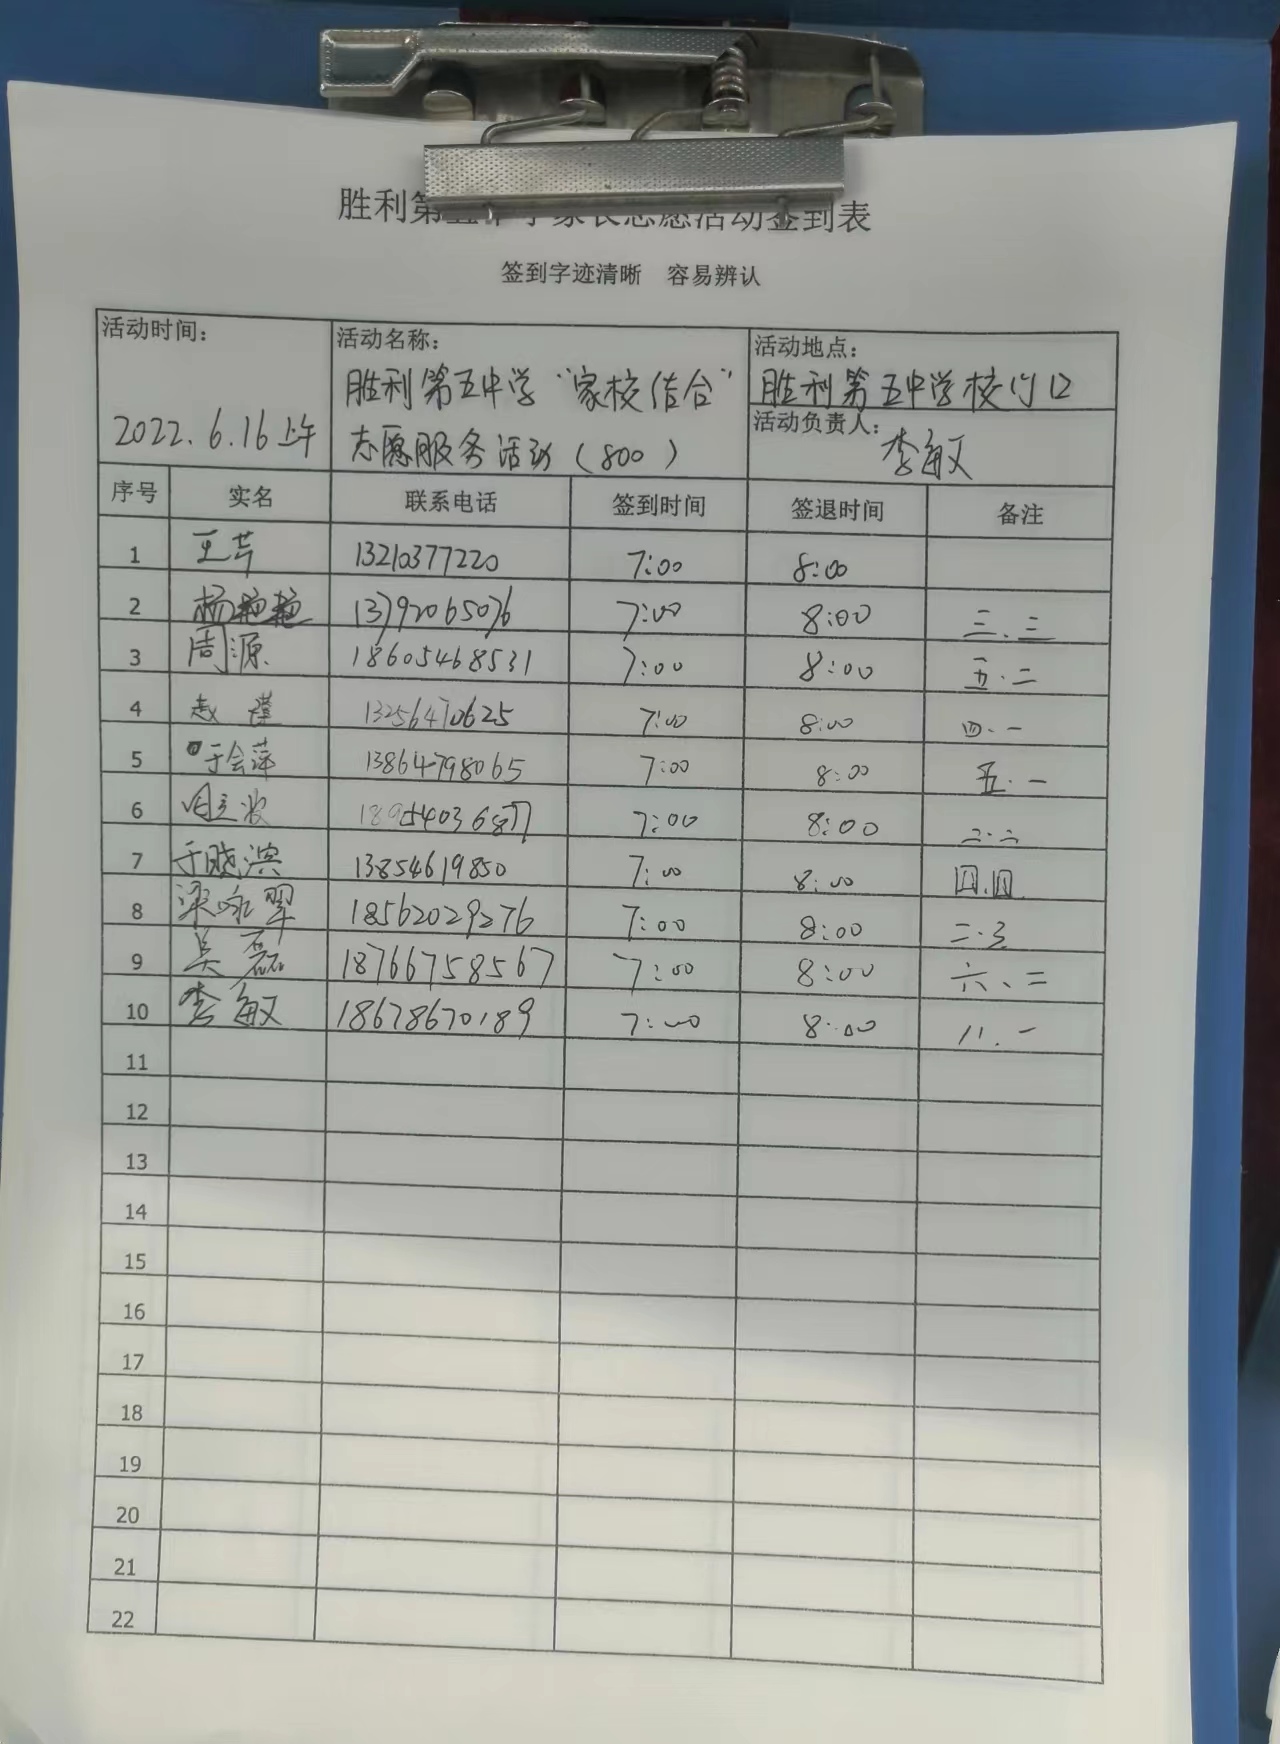 胜利第五中学家长志愿活动签到表
签到字迹清晰 容易辨认
活动时间：
2022.6.16上午
活动名称：
胜利第五中学“家校结合”
志愿服务活动（800）
活动地点：
胜利第五中学校门口
活动负责人：
李敏
序号 实名 联系电话 签到时间 签退时间 备注
1 王芹 13210377220 7:00 8:00
2 杨艳艳 13792065076 7:00 8:00 三.三
3 周源 18605468531 7:00 8:00 五.二
4 赵 13256470625 7:00 8:00 四.一
5 于会萍 13864798065 7:00 8:00 五.一
6 7:00 8:00 二.六
7 于晓滨 13854619850 7:00 8:00 四.四
8 梁咏翠 18562029276 7:00 8:00 二.三
9 吴磊 18766758567 7:00 8:00 六、二
10 李敏 18678670189 7:00 8:00 八.一
11
12
13
14
15
16
17
18
19
20
21
22